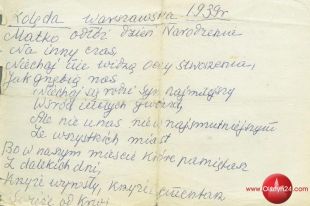 Kolęda warszawska 1939r.
Matko odłóż dzień Narodzenia
Na inny czas
Niechaj nie widzą oczy stworzenia,
Jak gnębią nas
Niechaj się rodzi syn najmilszy
Wśród innych gwiazd,
Ale nie u nas nie w najsmutniejszym
Ze wszystkich miast
Bo w naszym mieście które pamiętasz
Z dalekich dni,
Krzyże wyrosły, krzyże i cmentarz
od krwi
Olsztyn24.com